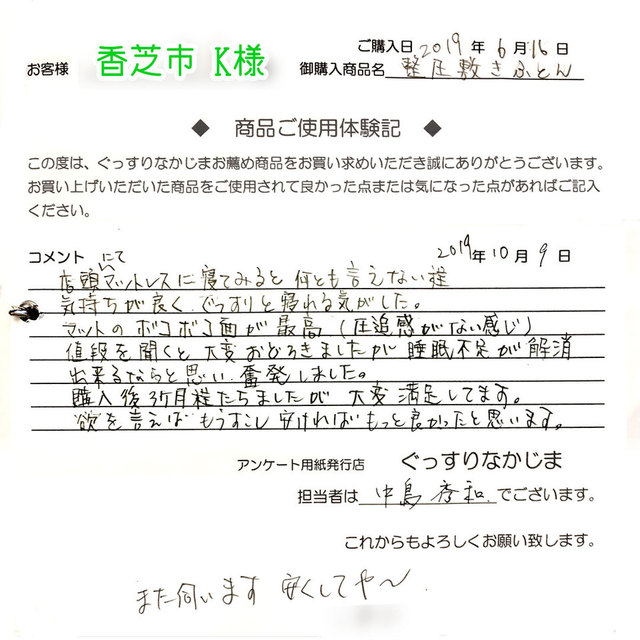 ご購入日 2019年 6月 16日
お客様 香芝市 K様 御購入商品名 整圧敷きふとん
◆ 商品ご使用体験記 ◆
この度は、ぐっすりなかじまお薦め商品をお買い求めいただき誠にありがとうございます。
お買い上げいただいた商品をご使用されて良かった点または気になった点があればご記入
ください。
コメント 2019年 10月 9日
店頭にてマットレスに寝てみると何とも言えない程
気持ちが良く、ぐっすりと寝れる気がした。
マットのボコボコ面が最高(圧迫感がない感じ)
値段を聞くと大変おどろきましたが睡眠不足が解消
出来るならと思い、奮発しました。
購入後3ケ月程たちましたが大変満足してます。
欲を言えばもうすこし安ければもっと良かったと思います。
アンケート用紙発行店 ぐっすりなかじま
担当者は 中島秀和 でございます。
これからもよろしくお願い致します。
また伺います 安くしてや〜